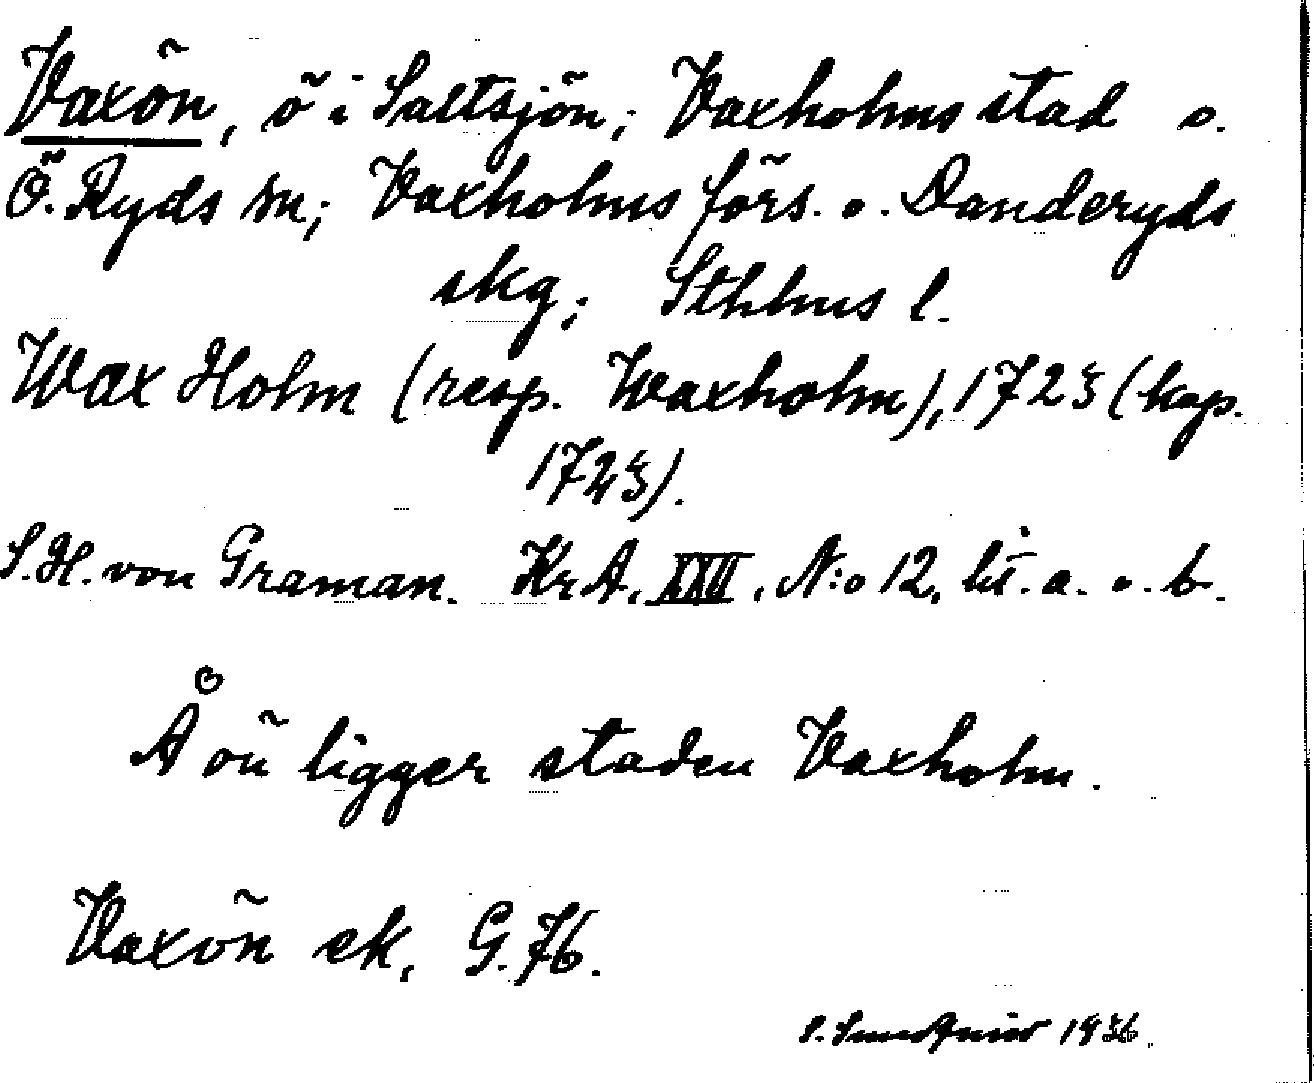 Vaxön, ö i Saltsjön; Vaxholms stad o.
Ö. Ryds sn; Vaxholms förs. o. Danderyds
skg; Sthlms l.
Wax Holm (resp. Waxholm), 1723 (kop.
1723).
S.H. von Graman. Kr A. XXII, N:o 12, lit. a. o. b.
Å ön ligger staden Vaxholm.
Vaxön ek. G. 76.
1936.